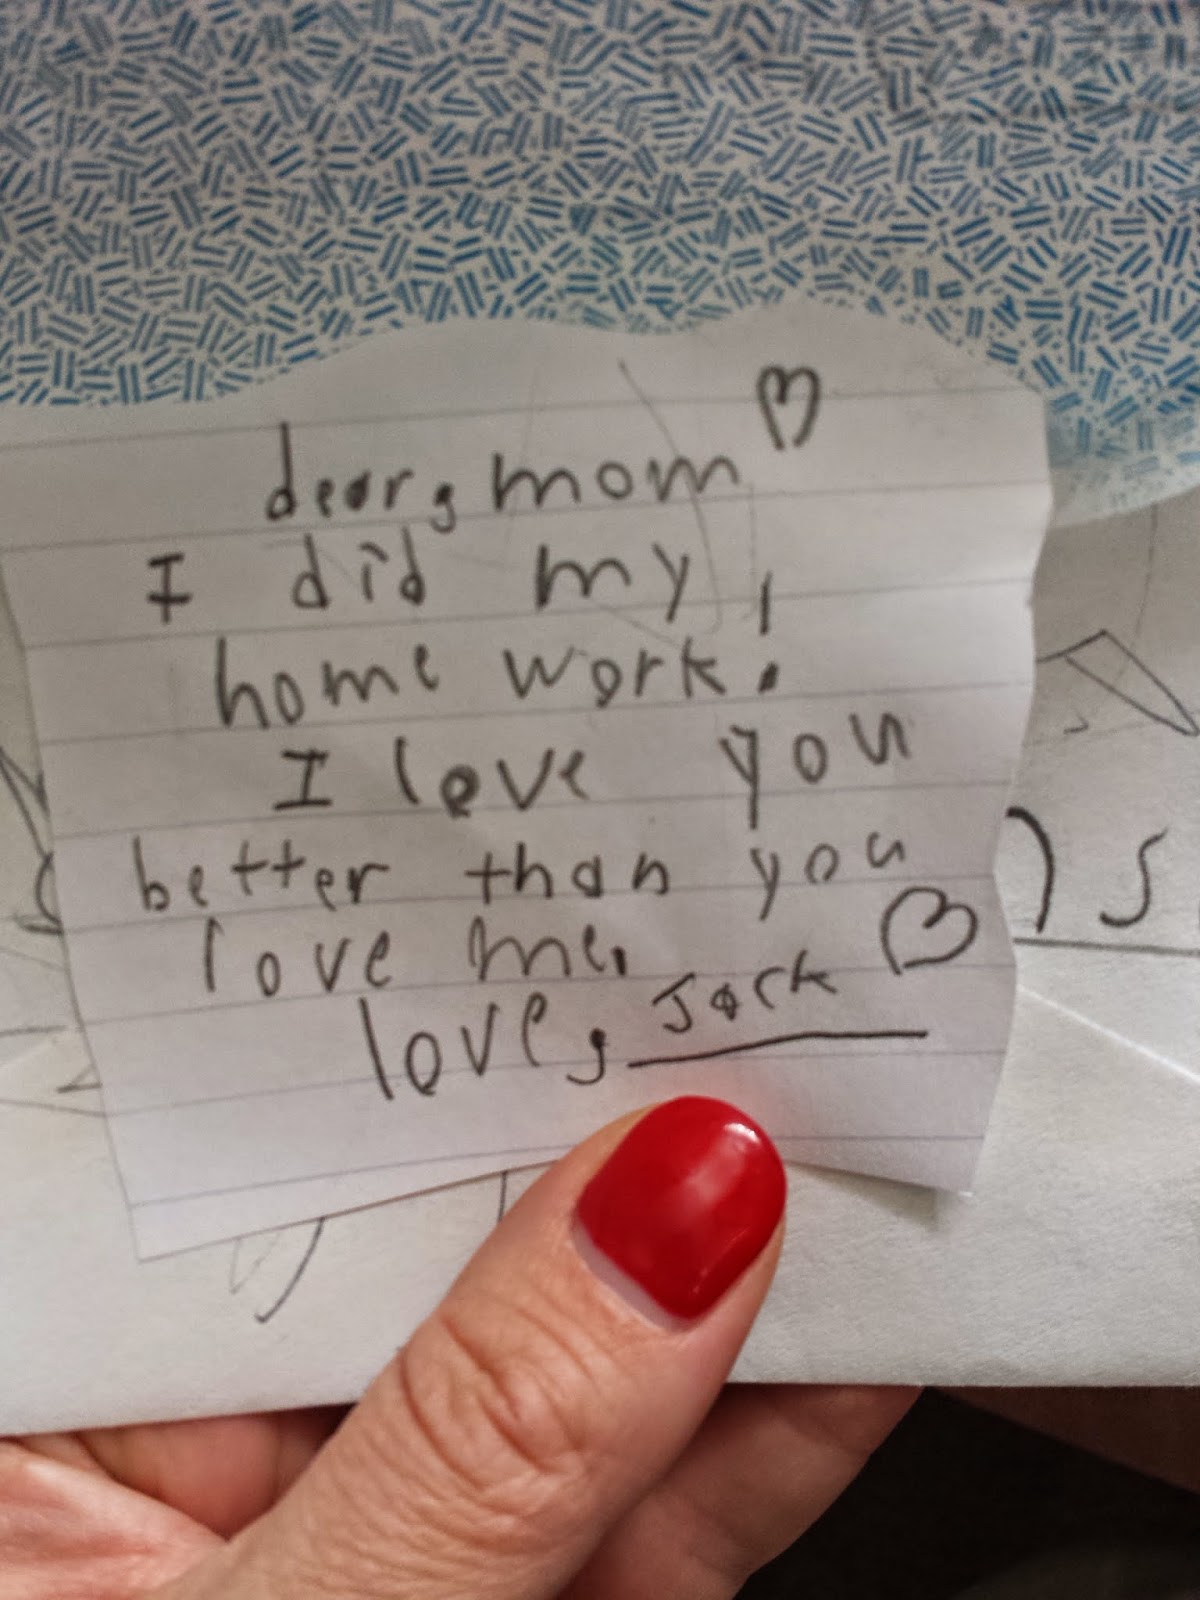 dear, mom ♡
I did my
home work!
I love you
better than you
love me.
love, Jack ♡
) s